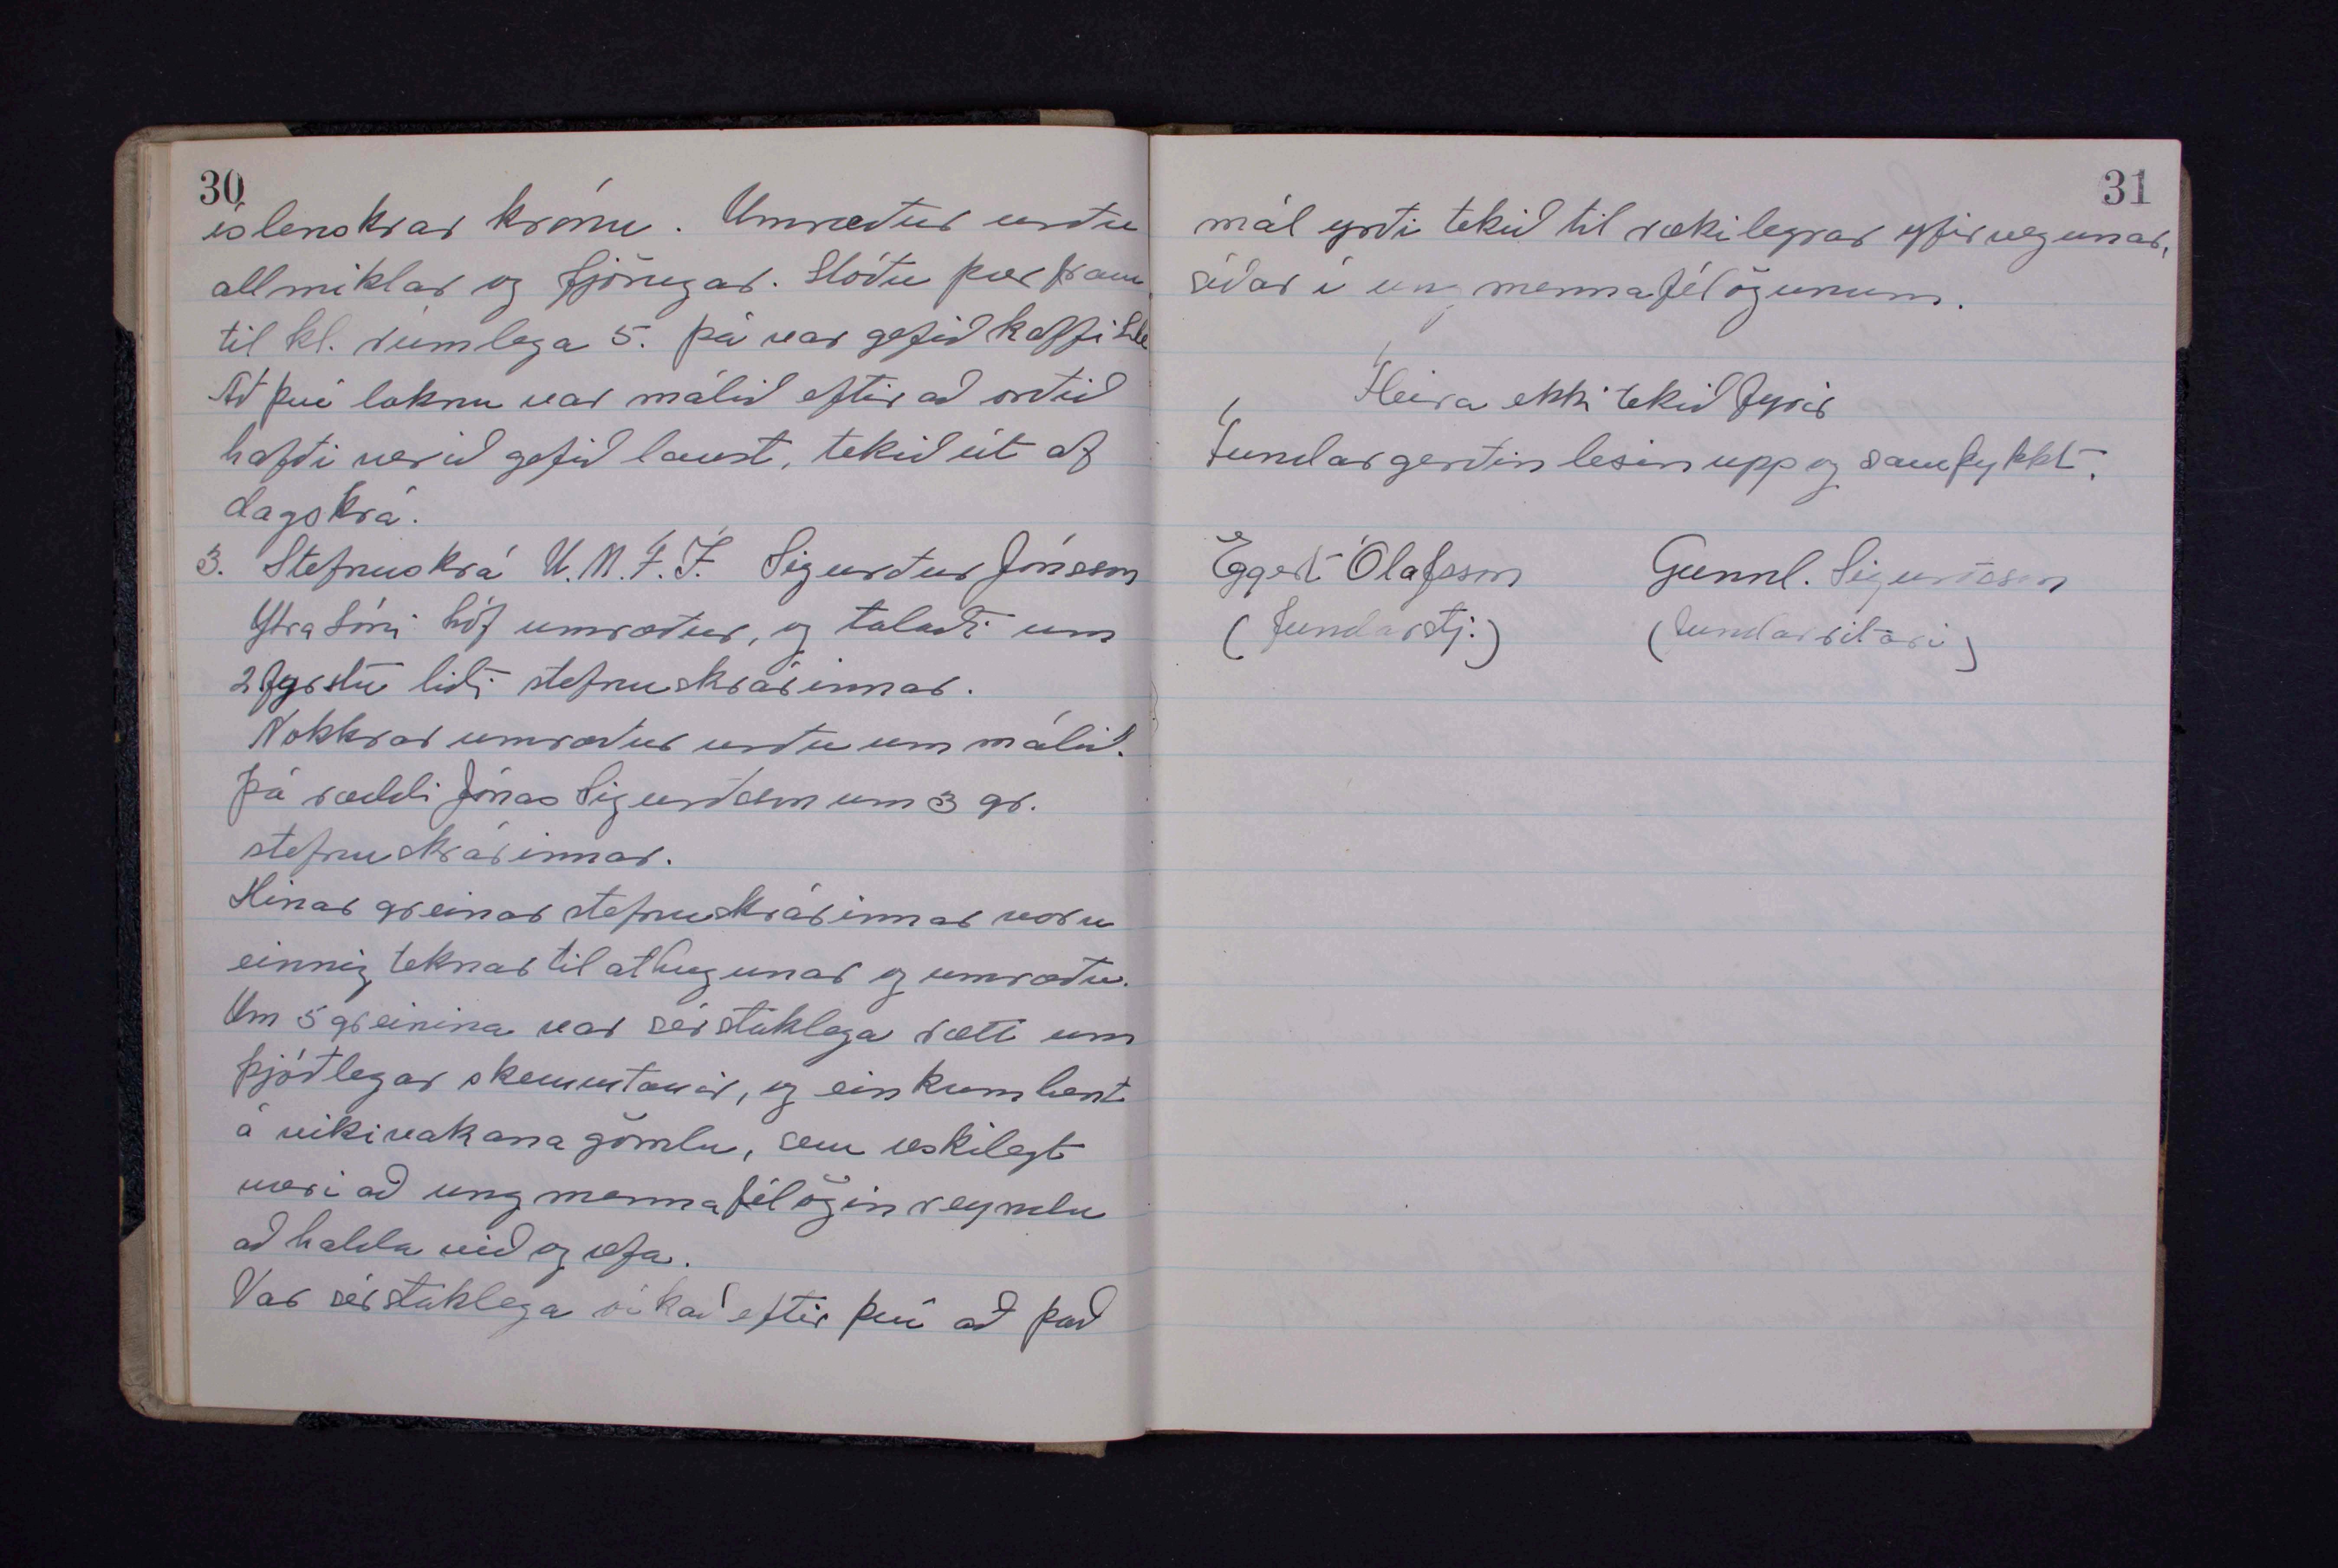 30
íslenskrar krónu. Umræður urðu
allmiklar og fjörugar. Stóðu þær fram
til kl. rúmlega 5. Þá var gefið kaffi
Að því loknu var málið eftir að orðið
hafði verið gefið laust, tekið út af
dagskrá.
3. Stefnuskrá U.M.F.Í. Sigurður Jónsson
Ytra Lóni hóf umræður, og talaði um
2 fyrstu liði stefnuskrárinnar.
Nokkrar umræður urðu um málið.
Þá ræddi Jónas Sigurðsson um 3 gr.
stefnuskrárinnar.
Hinar greinar stefnuskrárinnar voru
einnig teknar til athugunar og umræðu.
Um 5 greinina var sérstaklega rætt um
þjóðlegar skemmtanir, og einkum bent
á vikivakana gömlu, sem æskilegt
væri að ungmennafélögin reyndu
að halda við og æfa.
Var sérstaklega óskað eftir því að það
31
mál yrði tekið til rækilegrar yfirvegunar,
síðar í ungmennafélögunum.
Fleira ekki tekið fyrir
Fundargerðin lesin upp og samþykkt.
Eggert Ólafsson Gunnl. Sigurðsson
(fundarstj.) (fundarritari)